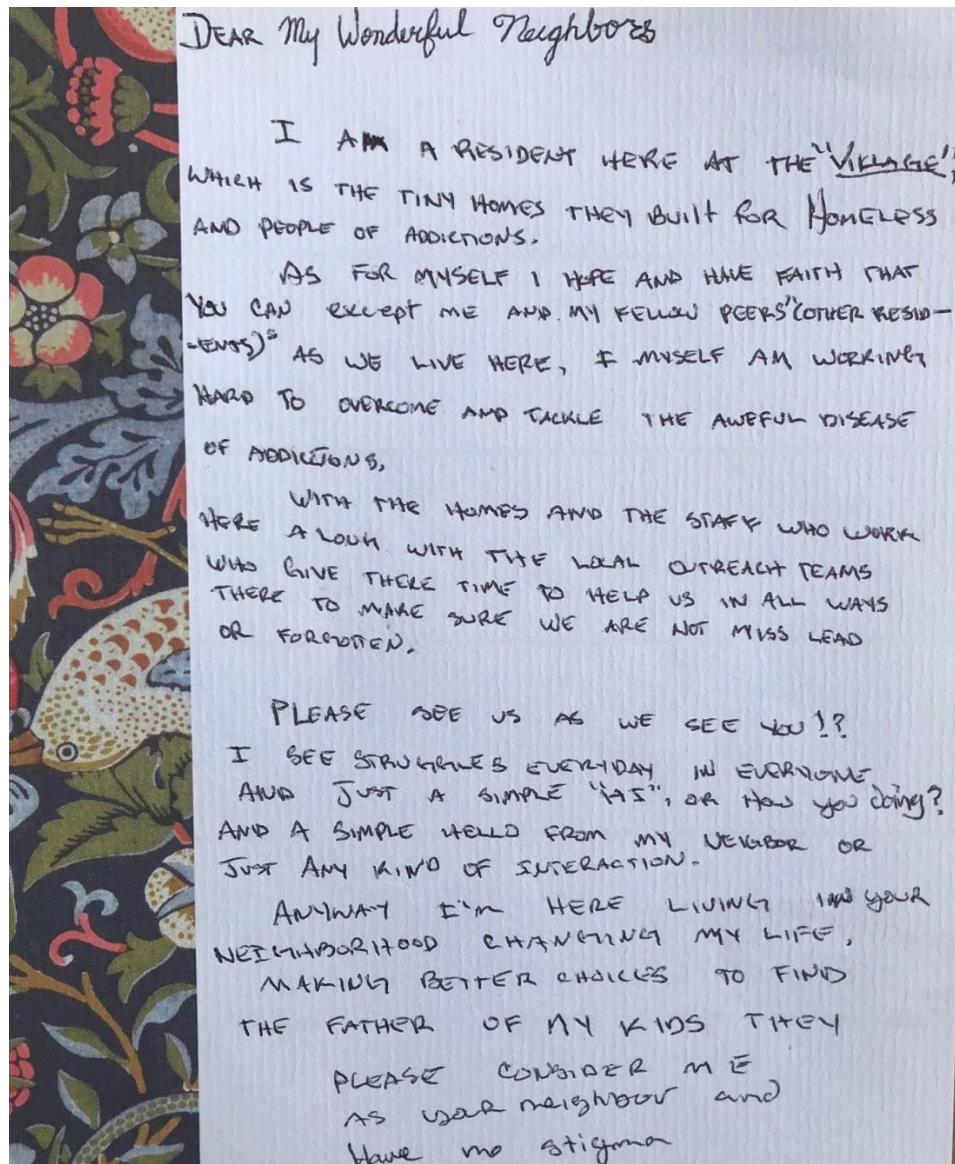 DEAR My Wonderful Neighbors
I AM A RESIDENT HERE AT THE "VILLAGE",
WHICH IS THE TINY HOMES THEY BUILT FOR HOMELESS
AND PEOPLE OF ADDICTIONS.
AS FOR MYSELF I HOPE AND HAVE FAITH THAT
YOU CAN EXCEPT ME AND MY FELLOW PEERS "(OTHER RESID-
-ENTS)" AS WE LIVE HERE, I MYSELF AM WORKING
HARD TO OVERCOME AND TACKLE THE AWEFUL DISEASE
OF ADDICTIONS,
WITH THE HOMES AND THE STAFF WHO WORK
HERE A LONG WITH THE LOCAL OUTREACH TEAMS
WHO GIVE THERE TIME TO HELP US IN ALL WAYS
THERE TO MAKE SURE WE ARE NOT MISS LEAD
OR FORGOTTEN.
PLEASE SEE US AS WE SEE YOU!?
I SEE STRUGGLES EVERYDAY IN EVERYONE
AND JUST A SIMPLE "HI", OR HOW YOU doing?
AND A SIMPLE HELLO FROM MY NEIGBOR OR
JUST ANY KIND OF INTERACTION.
ANYWAY I'm HERE LIVING IN YOUR
NEIGHBORHOOD CHANGING MY LIFE,
MAKING BETTER CHOICES TO FIND
THE FATHER OF MY KIDS THEY
PLEASE CONSIDER ME
AS your neighbor and
Have no stigma